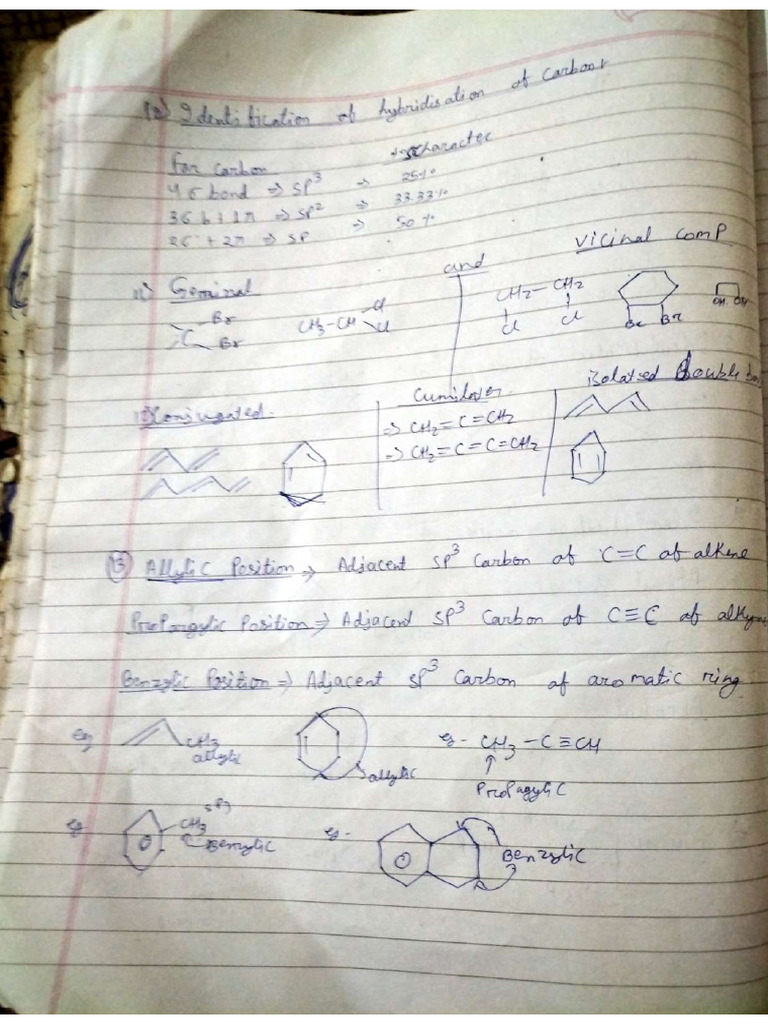 10) Identification of hybridisation of Carbon
For carbon % s character
4 σ bond => sp³ => 25%
3σ b + 1π => sp² => 33.33%
2σ + 2π => sp => 50%
11) Geminal and Vicinal comp
C Br Br CH3-CH Cl Cl CH2-CH2 Cl Cl Br Br OH OH
12) Conjugated Cumulative Isolated Double
=> CH2=C=CH2
=> CH2=C=C=CH2
13) Allylic Position => Adjacent sp³ Carbon of C=C of alkene
Propargylic Position => Adjacent sp³ Carbon of C≡C of alkyne
Benzylic Position => Adjacent sp³ Carbon of aromatic ring
eg CH3 allylic allylic eg- CH3-C≡CH
↑
Propagylic
eg CH3 sp3 Benzylic eg- Benzylic